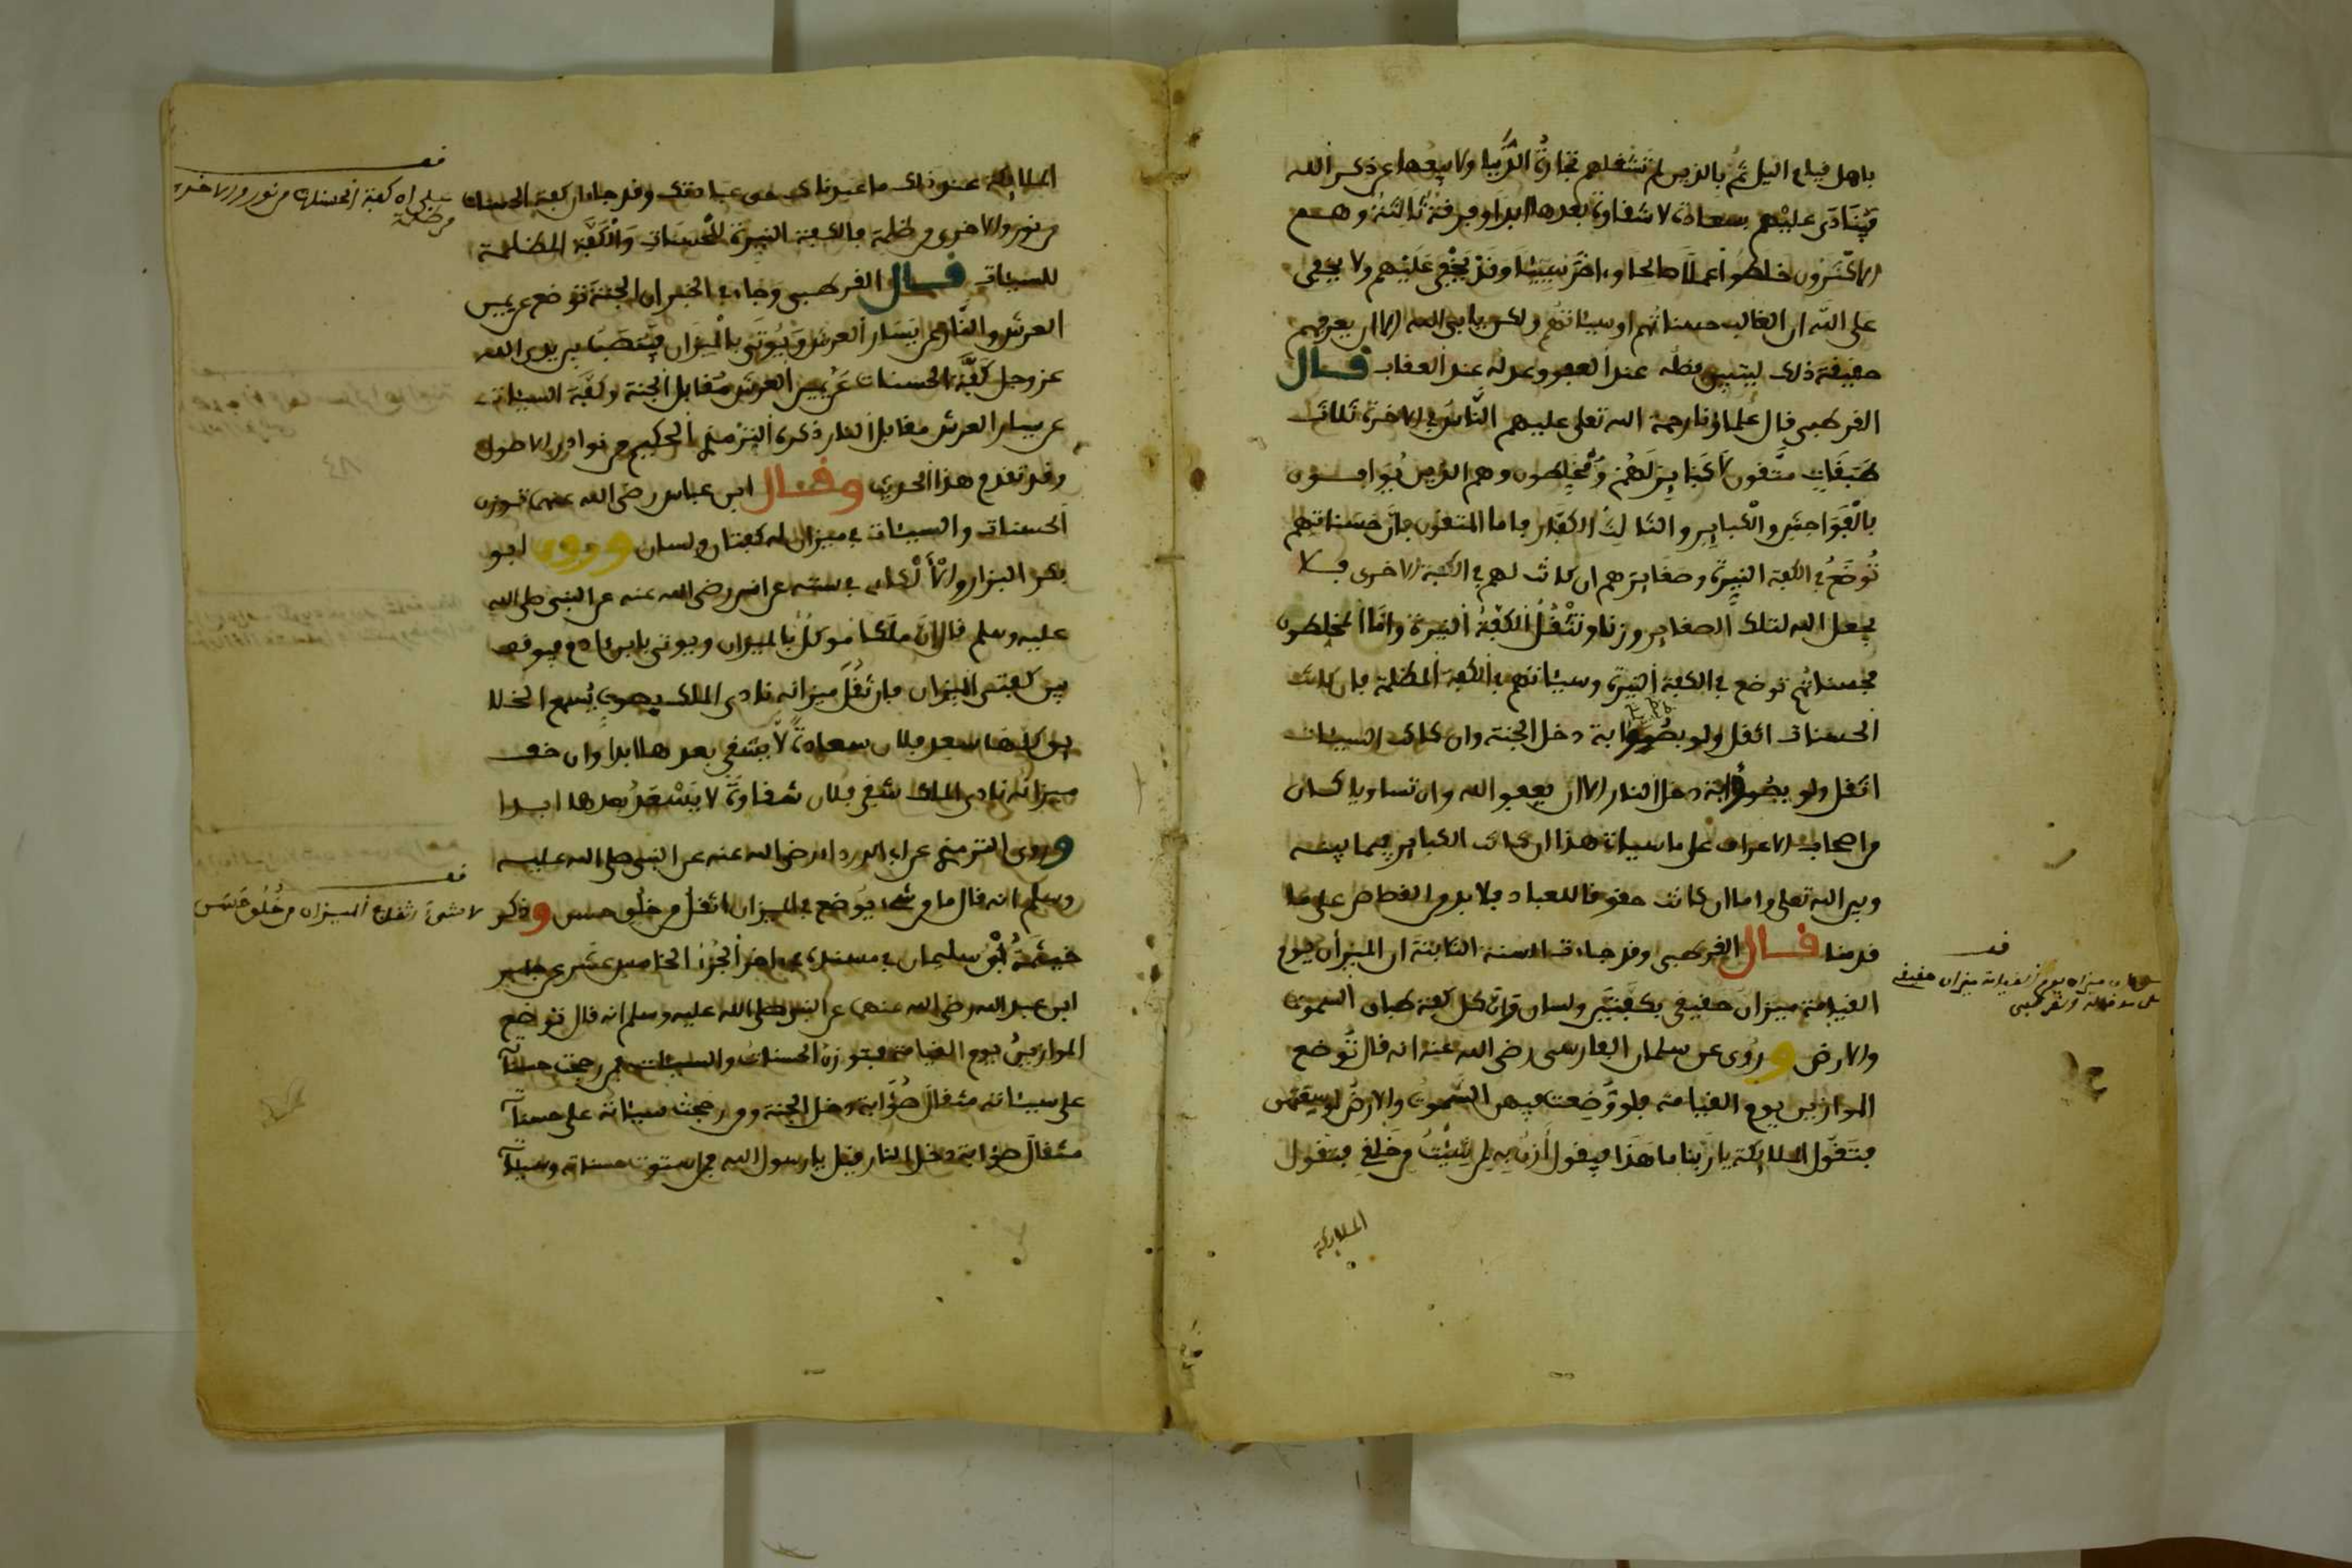 باهل قيام اليل ثم بالذين لم تشغلهم تجارة الدنيا ولا بيعها عن ذكر الله
فينادى عليهم سعادة لا شقاوة بعدها ابدا وفرقة ثالثة وهم
الاكثرون خلطوا عملا صالحا وءاخر سيئا وقد يخفى عليهم ولا يخفى
على الله ان الغالب حسناتهم او سيئاتهم ولكن يابى الله الا ان يعرفهم
حقيقة ذلك ليتبين فضله عند العفو وعدله عند العقاب قال
القرطبي قال علماؤنا رحمة الله تعلى عليهم الناس في الاخرة ثلاث
طبقات متقون لا كبائر لهم ومخلطون وهم الذين يوافون
بالفواحش والكبائر والثالث الكفار فاما المتقون فان حسناتهم
توضع في الكفة النيرة وصغائرهم ان كانت لهم في الكفة الاخرى فلا
يجعل الله لتلك الصغاير وزنا وتثقل الكفة النيرة واما المخلطون
فحسناتهم توضع في الكفة النيرة وسيئاتهم في الكفة المظلمة فان كانت
الحسنات اثقل ولو بصؤابة دخل الجنة وان كانت السيئات
اثقل ولو بصؤابة دخل النار الا ان يعفو الله وان تساويا كان
من اصحاب الاعراف على ما سياتي هذا ان كانت الكبائر فيما بينه
وبين الله تعلى واما ان كانت حقوقا للعباد فلا بد من القصاص على ما
قدمنا قال القرطبي وقد جاءت السنة الثابتة ان الميزان يوم
القيامة ميزان حقيقي بكفتين ولسان وان كل كفة طباق السموت
والارض وروى عن سلمان الفارسي رضي الله عنه انه قال توضع
الموازين يوم القيامة فلو وضعت فيهن السموت والارض لوسعتهن
فتقول الملائكة يا ربنا ما هذا فيقول ازن به لمن شئت من خلقي فتقول
الملائكة
قف
ميزان يوم القيامة ميزان حقيقي
الملائكة عند ذلك ما عبدناك حق عبادتك وقد جاء ان كفة الحسنات
من نور والاخرى من ظلمة فالكفة النيرة للحسنات والكفة المظلمة
للسيئات قال القرطبي وجاء في الخبر ان الجنة توضع عن يمين
العرش والنار عن يسار العرش ويؤتى بالميزان فينصب بين يدي الله
عز وجل كفة الحسنات عن يمين العرش مقابل الجنة وكفة السيئات
عن يسار العرش مقابل النار ذكره الترمذي الحكيم في نوادر الاصول
وقد تقدم هذا الحديث وقال ابن عباس رضي الله عنهما توزن
الحسنات والسيئات في ميزان له كفتان ولسان وروى ابو
بكر البزار في سننه عن انس رضي الله عنه عن النبي صلى الله
عليه وسلم قال ان ملكا موكل بالميزان ويوتى بابن ءادم فيوقف
بين كفتي الميزان فان ثقل ميزانه نادى الملك بصوت يسمع الخلا
يق كلها سعد فلان سعادة لا يشقى بعدها ابدا وان خف
ميزانه نادى الملك شقي فلان شقاوة لا يسعد بعدها ابدا
وروى الترمذي عن ابي الدرداء رضي الله عنه عن النبي صلى الله عليه
وسلم انه قال ما من شيء يوضع في الميزان اثقل من خلق حسن وذكر
خيثمة بن سليمان في مسنده في اخر الجزء الخامس عشر عن جابر
ابن عبد الله رضي الله عنهما عن النبي صلى الله عليه وسلم انه قال توضع
الموازين يوم القيامة فتوزن الحسنات والسيئات فمن رجحت حسناته
على سيئاته مثقال صؤابة دخل الجنة ومن رجحت سيئاته على حسناته
مثقال صؤابة دخل النار فقيل يا رسول الله فمن استوت حسناته وسيئاته
قف
على ان كفة الحسنات من نور والاخرى
من ظلمة
قف
لا شيء اثقل في الميزان من خلق حسن